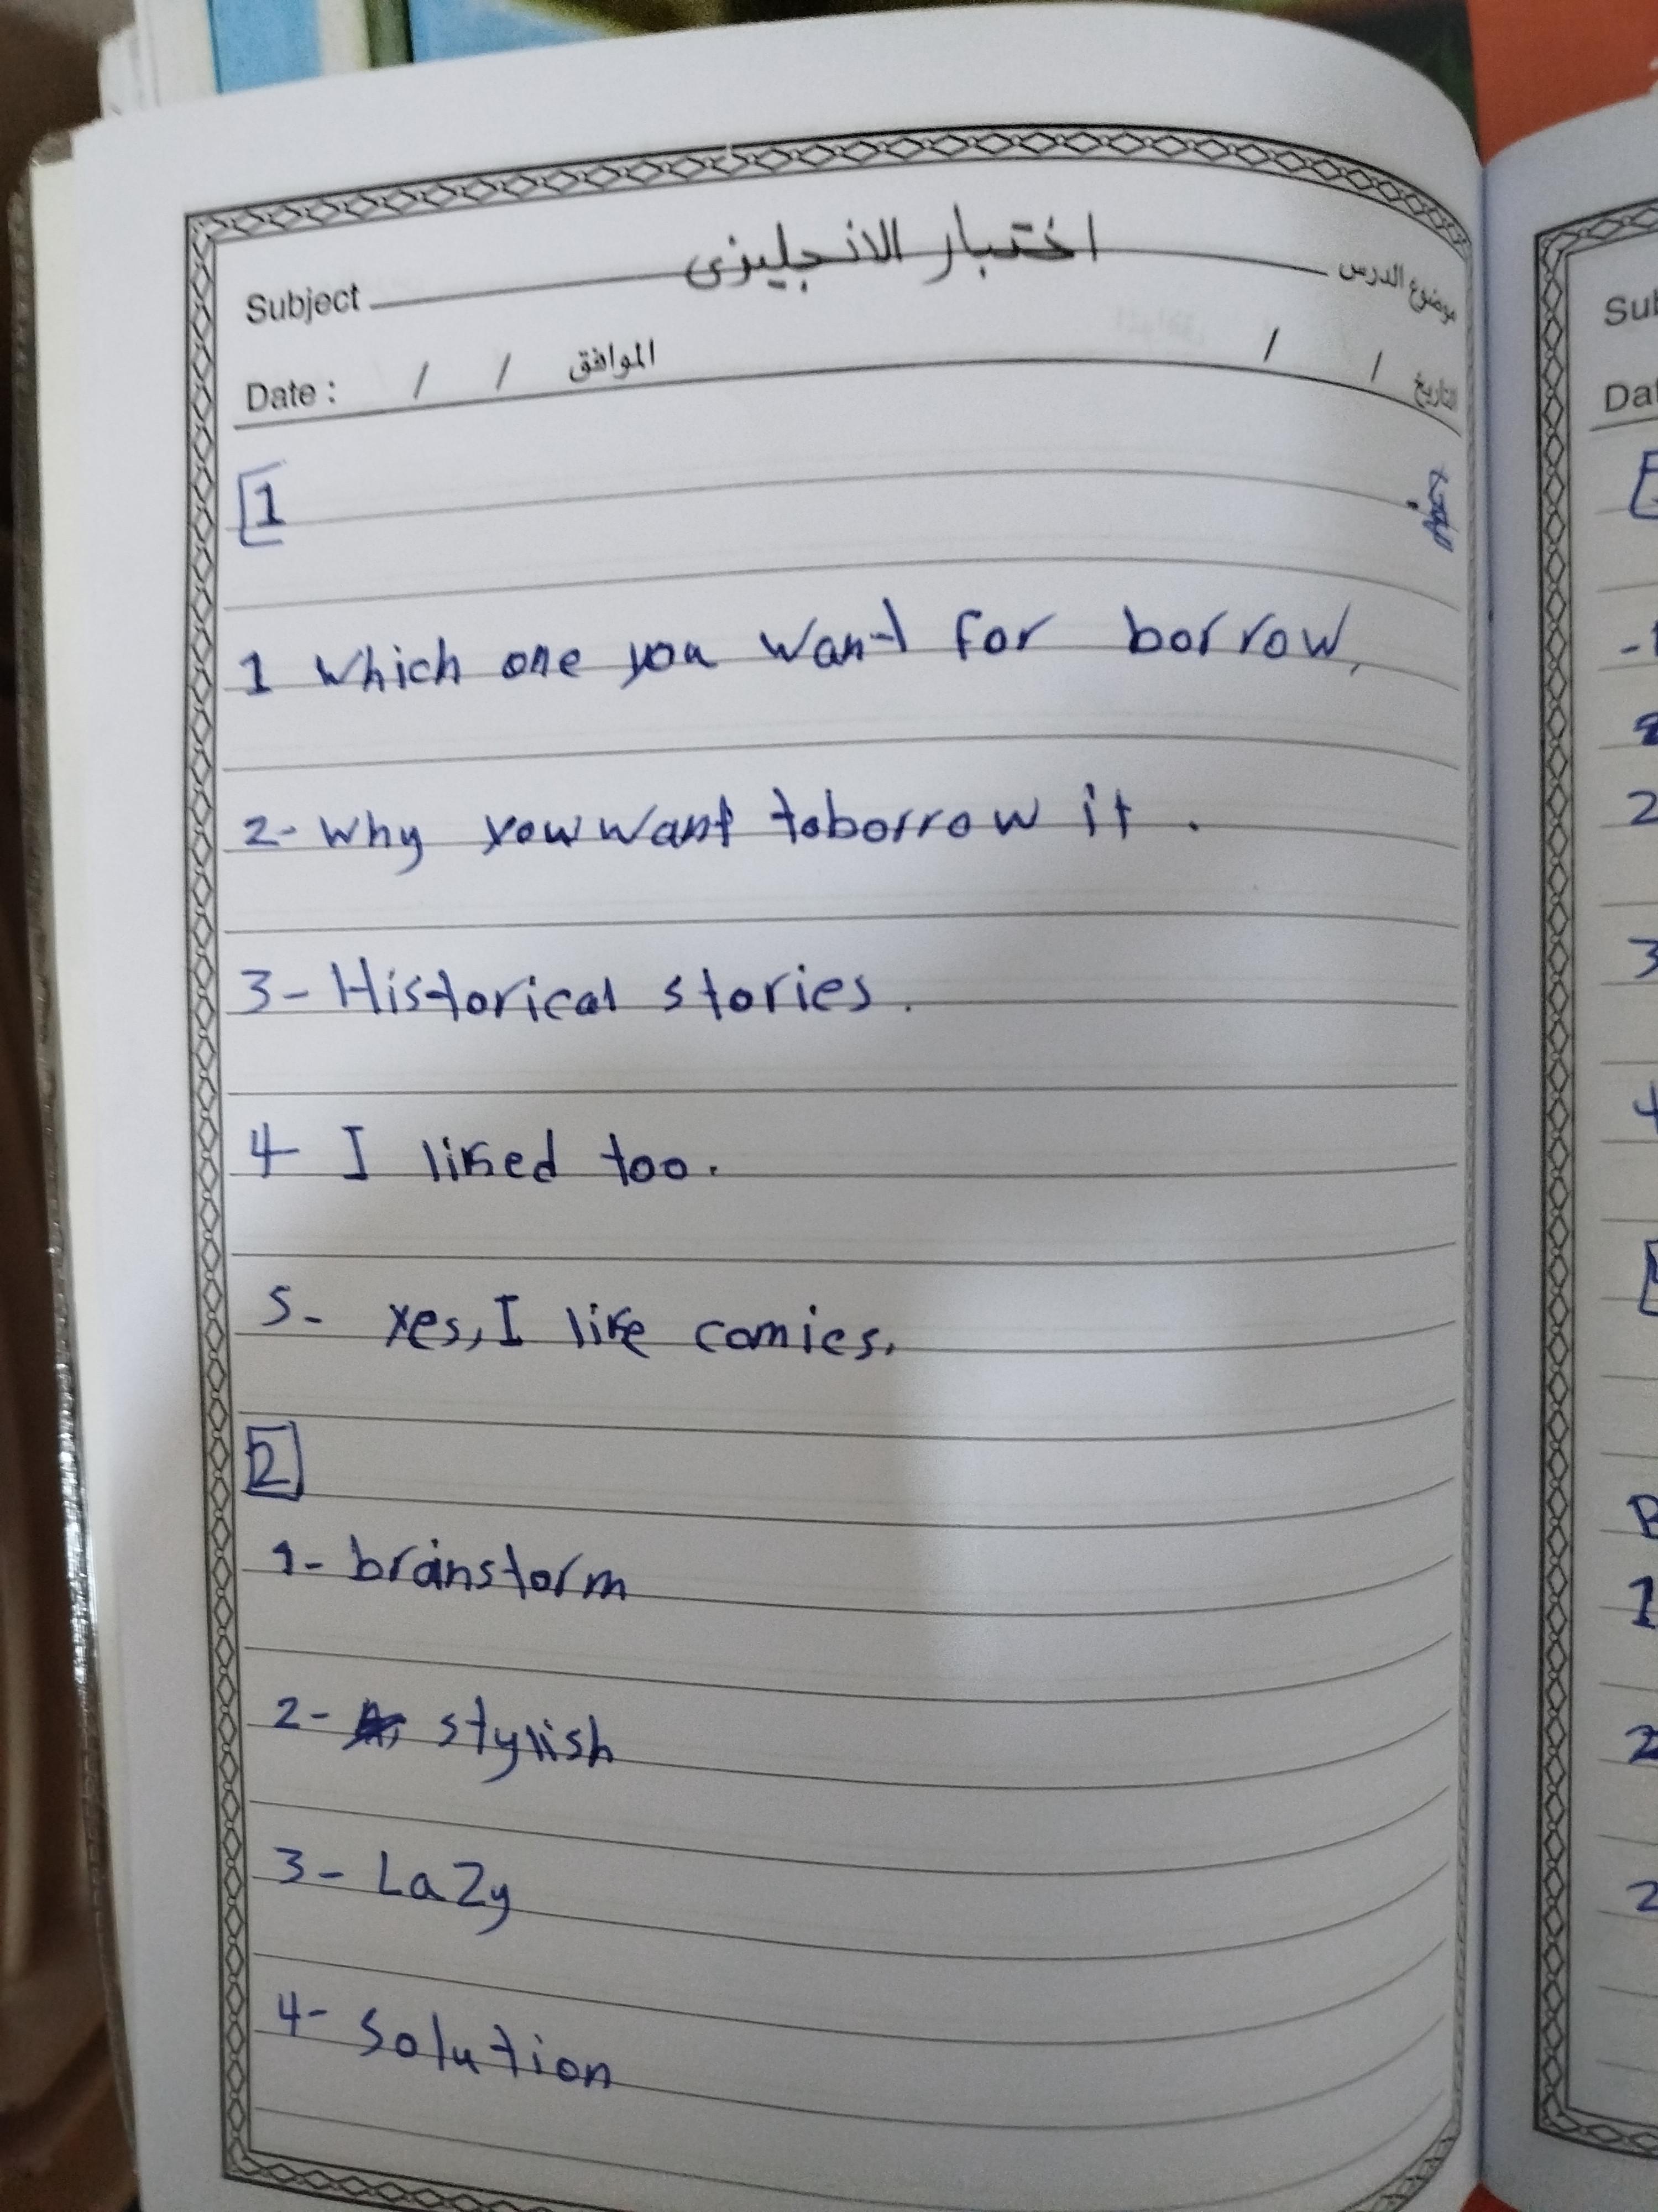 Subject اختبار الانجليزى موضوع الدرس
Date : / / الموافق / / التاريخ
1
1 which one you want for borrow,
2- why yow want toborrow it .
3- Historical stories .
4- I liked too.
5- yes, I like comics.
2
1- brainstorm
2- stylish
3- Lazy
4- solution